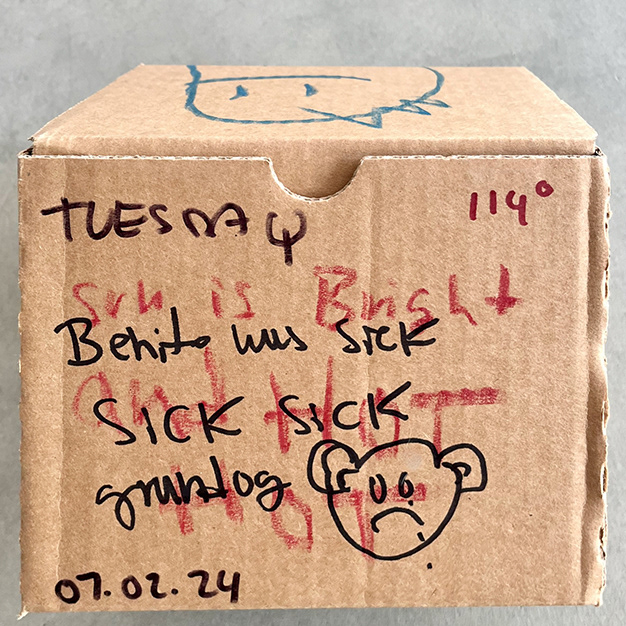 TUESDAY
114°
sun is Bright
Benito was SICK
and HOT
SICK SICK
HOT
07.02.24